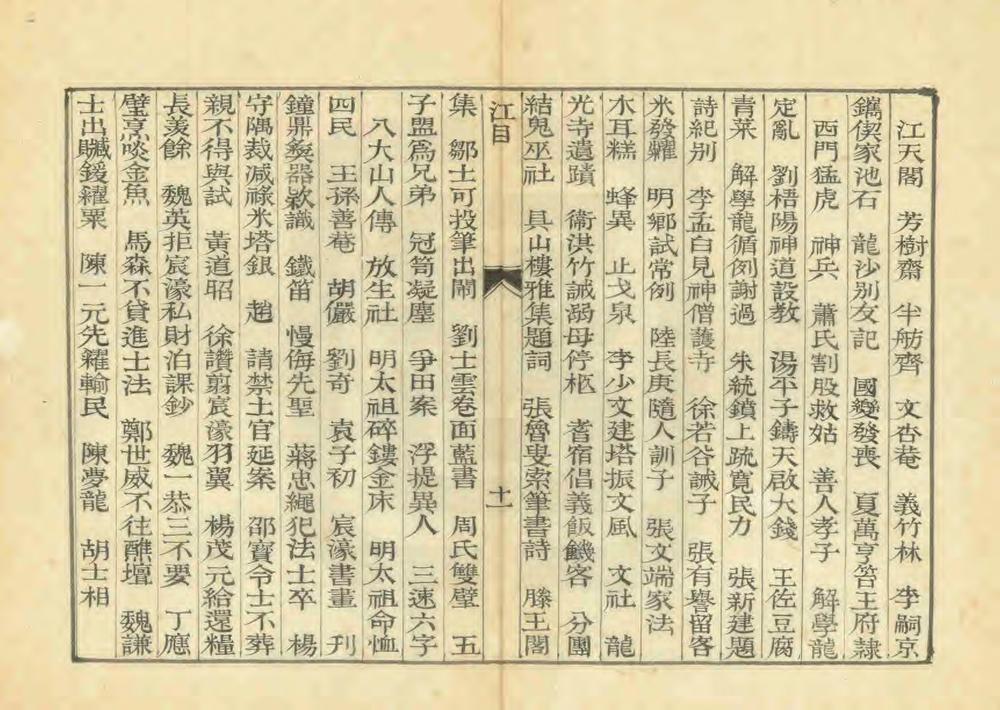 江天閣　芳樹齋　半舫齊　文杏菴　義竹林　李嗣京
鐫偰家池石　龍沙别友記　國變發喪　夏萬亨笞王府隸
西門猛虎　神兵　蕭氏割股救姑　善人孝子　解學龍
定亂　劉梧陽神道設教　湯平子鑄天啟大錢　王佐豆腐
青菜　解學龍循例謝過　朱統鐼上疏寬民力　張新建題
詩紀别　李孟白見神僧護寺　徐若谷誡子　張有譽留客
米發糶　明鄉試常例　陸長庚隨人訓子　張文端家法
木耳糕　蜂異　止戈泉　李少文建塔振文風　文社　龍
光寺遺蹟　衞淇竹誡溺母停柩　耆宿倡義飯饑客　分團
結鬼巫社　具山樓雅集題詞　張魯叟索筆書詩　滕王閣
江目　十一
集　鄒士可投筆出鬧　劉士雲卷面藍書　周氏雙璧　五
子盟爲兄弟　冠笥凝塵　爭田案　浮提異人　三速六字
八大山人傳　放生社　明太祖碎鏤金床　明太祖命恤
四民　王孫善菴　胡儼　劉奇　袁子初　宸濠書畫　刋
鐘鼎彜器欵識　鐵笛　慢侮先聖　蔣忠繩犯法士卒　楊
守隅裁減祿米塔銀　趙　請禁土官延案　邵寶令士不葬
親不得與試　黃道昭　徐讚翦宸濠羽翼　楊茂元給還糧
長羡餘　魏英拒宸濠私財泊課鈔　魏一恭三不要　丁應
璧烹啖金魚　馬森不貸進士法　鄭世威不往醮壇　魏謙
士出贓鍰糴粟　陳一元先糴輸民　陳夢龍　胡士相